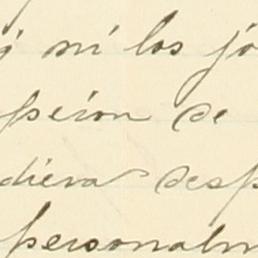 ni los jó
de
diera desp
personalm